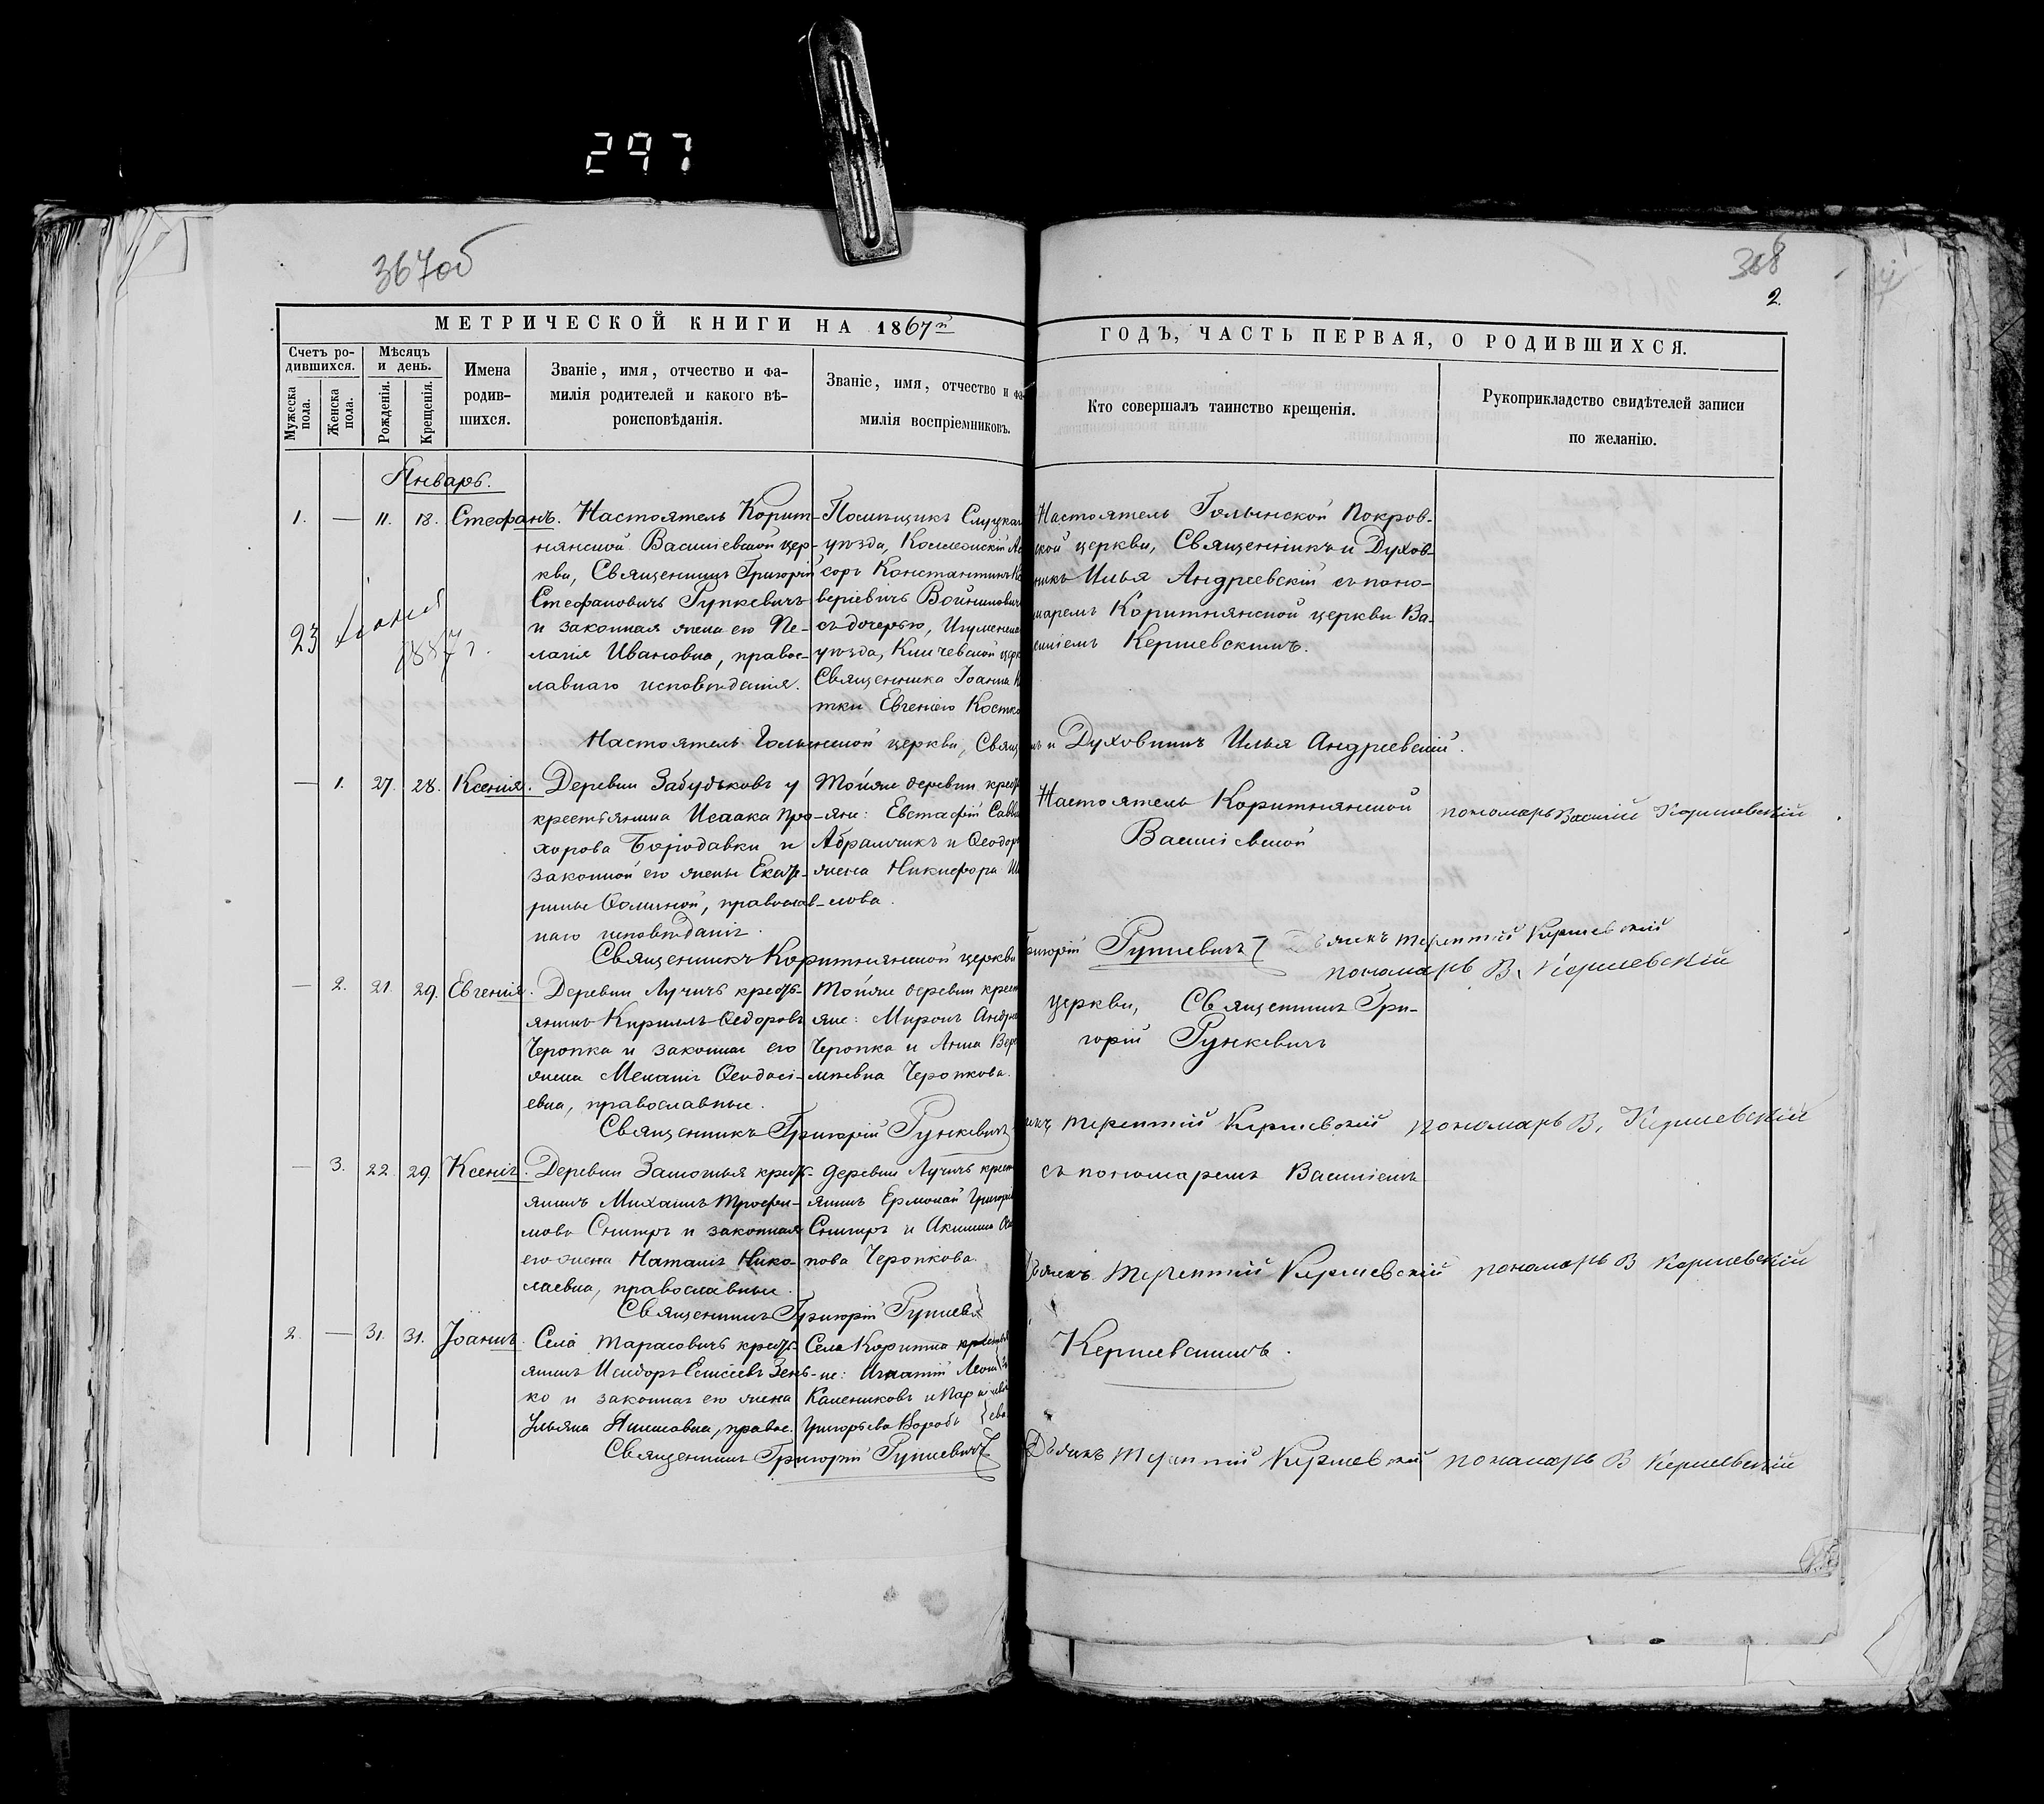 297
367об
368
2.
МЕТРИЧЕСКОЙ КНИГИ НА 1867й
ГОДЪ, ЧАСТЬ ПЕРВАЯ, О РОДИВШИХСЯ.
Счетъ ро-
дившихся.
Мужеска
пола.
Женска
пола.
Мѣсяцъ
и день.
Рожденія.
Крещенія.
Имена
родив-
шихся.
Званіе, имя, отчество и фа-
милія родителей и какого вѣ-
роисповѣданія.
Званіе, имя, отчество и фа-
милія воспріемниковъ.
Кто совершалъ таинство крещенія.
Рукоприкладство свидѣтелей записи
по желанію.
Январь.
1. — 11. 18. Стефанъ.
Настоятель Корит-
нянской Василіевской цер-
кви, Священникъ Григорій
Стефановичъ Рункевичъ
и законная жена его Пе-
лагія Ивановна, правос-
лавнаго исповѣданія.
Помѣщикъ Слуцкаго
уѣзда, Коллежскій Ас
соръ Константинъ
веріевичъ Войниловичъ
съ дочерью, Игуменскаго
уѣзда, Кличевской церк
Священника Іоанна
тки Евгеніею Костко
Настоятель Голынской Покров-
ской церкви, Священникъ и Духов-
никъ Илья Андреевскій съ поно-
маремъ Коритнянской церкви Ва-
силіемъ Кершевскимъ.
23
1887 г.
Настоятель Голынской церкви, Священ
къ и Духовникъ Илья Андреевскій.
— 1. 27. 28. Ксенія.
Деревни Забудьковъ у
крестьянина Исаака Про-
хорова Бородавки и
законной его жены Екате-
рины Ѳоминой, православ-
наго исповѣданія.
Тойже деревни крест
яне: Евстафій Савв
Абрамчикъ и Ѳеодор
жена Никифора
лова.
Настоятель Коритнянской
Василіевской
пономарь Василій Кершевскій
Священникъ Коритнянской церкви
Григорій Рункевичъ
Дьячекъ Терентій Кершевскій
пономарь В. Кершевскій
— 2. 21. 29. Евгенія.
Деревни Лучичъ кресть-
янинъ Кириллъ Ѳедоровъ
Черопка и законная его
жена Меланія Ѳеодосі-
евна, православные.
Тойже деревни крест
яне: Миронъ Андре
Черопка и Анна
Черопкова.
церкви, Священникъ Гри-
горій Рункевичъ
Священникъ Григорій Рункевичъ
Терентій Кершевскій
пономарь В. Кершевскій
— 3. 22. 29. Ксенія.
Деревни Замошья кресть-
янинъ Михаилъ Трофи-
мовъ Снитиръ и законная
его жена Наталія Нико-
лаевна, православные.
деревни Лучичъ крест
янинъ Ермолай Григорі
Снитиръ и Акилина
пова Черопкова.
съ пономаремъ Василіемъ
Священникъ Григорій Рункевичъ
Дьячекъ Терентій Кершевскій
пономарь В Кершевскій
2. — 31. 31. Іоаннъ.
Села Тарасовичъ кресть-
янинъ Исидоръ Елисеевъ Зень-
ко и законная его жена
Ульяна
Села Коритна крестья
не: Игнатій Леон
Калениковъ и Пар
Григорьева
Кершевскимъ.
Священникъ Григорій Рункевичъ
Дьячекъ Терентій Кершевскій
пономарь В Кершевскій